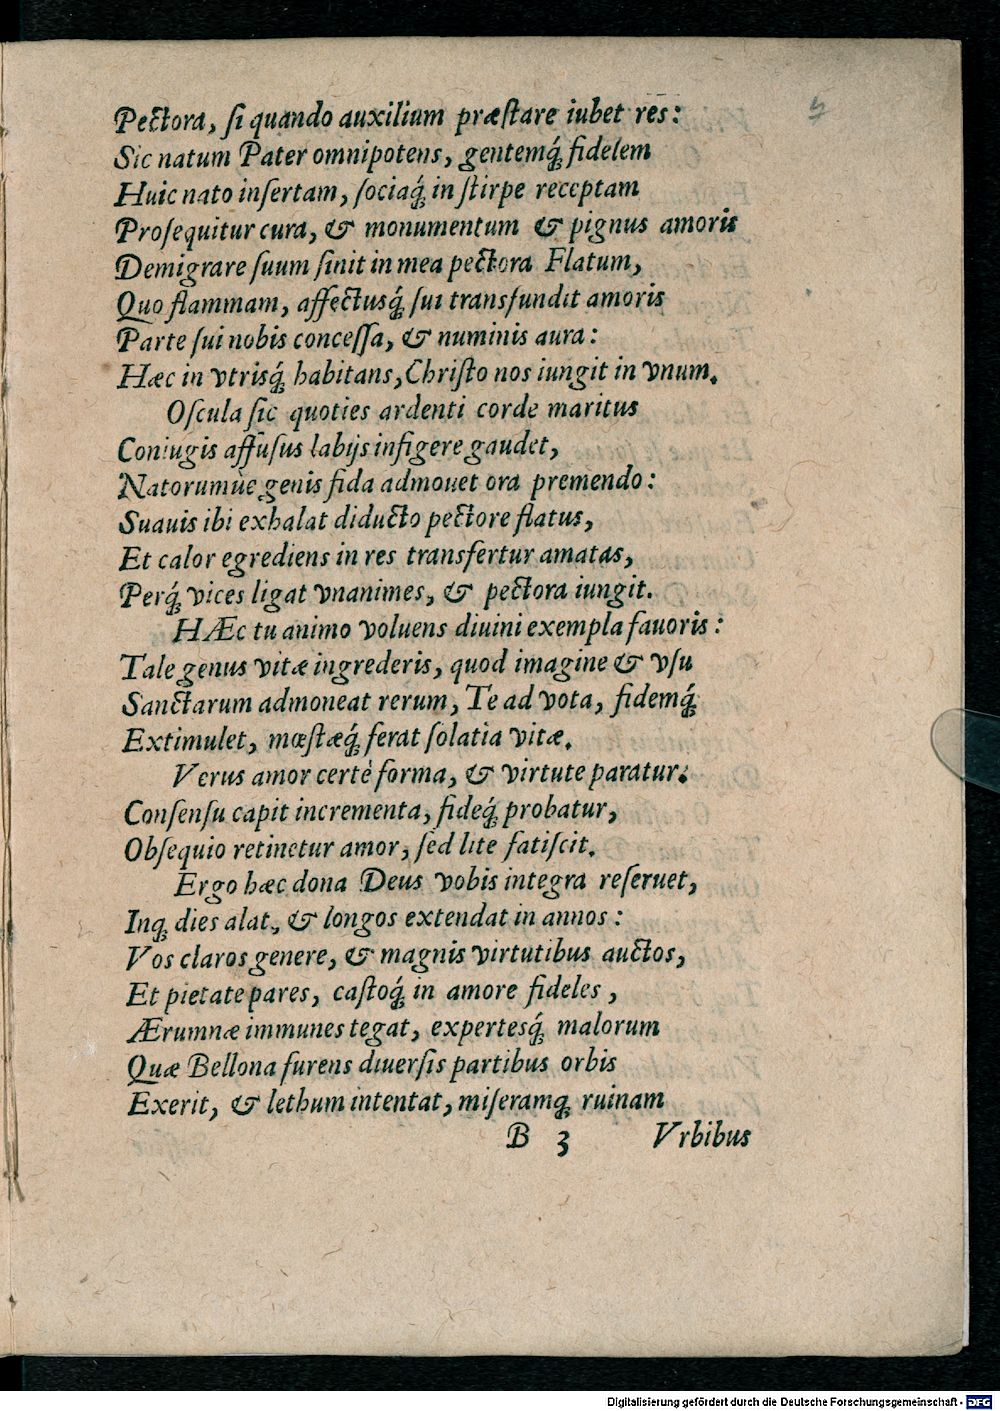 Pectora, ſi quando auxilium præſtare iubet res:
Sic natum Pater omnipotens, gentemq́; fidelem
Huic nato inſertam, ſociaq́; in ſtirpe receptam
Proſequitur cura, & monumentum & pignus amoris
Demigrare ſuum ſinit in mea pectora Flatum,
Quo flammam, affectusq́; ſui transfundit amoris
Parte ſui nobis conceſſa, & numinis aura:
Hæc in vtrisq́; habitans, Chriſto nos iungit in vnum.
Oſcula ſic quoties ardenti corde maritus
Coniugis affuſus labijs infigere gaudet,
Natorumùe genis fida admouet ora premendo:
Suauis ibi exhalat diducto pectore flatus,
Et calor egrediens in res transfertur amatas,
Perq́; vices ligat vnanimes, & pectora iungit.
HÆc tu animo voluens diuini exempla fauoris:
Tale genus vitæ ingrederis, quod imagine & vſu
Sanctarum admoneat rerum, Te ad vota, fidemq́;
Extimulet, mœſtæq́; ferat ſolatia vitæ.
Verus amor certè forma, & virtute paratur:
Conſenſu capit incrementa, fideq́; probatur,
Obſequio retinetur amor, ſed lite fatiſcit.
Ergo hæc dona Deus vobis integra reſeruet,
Inq; dies alat, & longos extendat in annos:
Vos claros genere, & magnis virtutibus auctos,
Et pietate pares, caſtoq́; in amore fideles,
Ærumnæ immunes tegat, expertesq́; malorum
Quæ Bellona furens diuerſis partibus orbis
Exerit, & lethum intentat, miſeramq; ruinam
B 3 Vrbibus
Digitalisierung gefördert durch die Deutsche Forschungsgemeinschaft - DFG